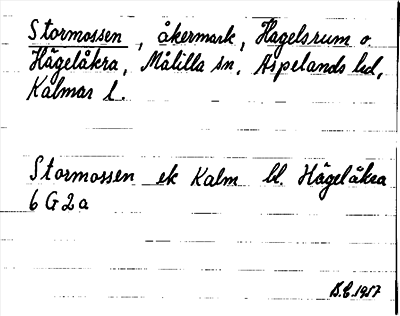 Stormossen, åkermark, Hagelsrum o.
Hägelåkra, Målilla sn, Aspelands hd,
Kalmar l.
Stormossen ek Kalm bl. Hägelåkra
6 G 2 a
B.E. 1957